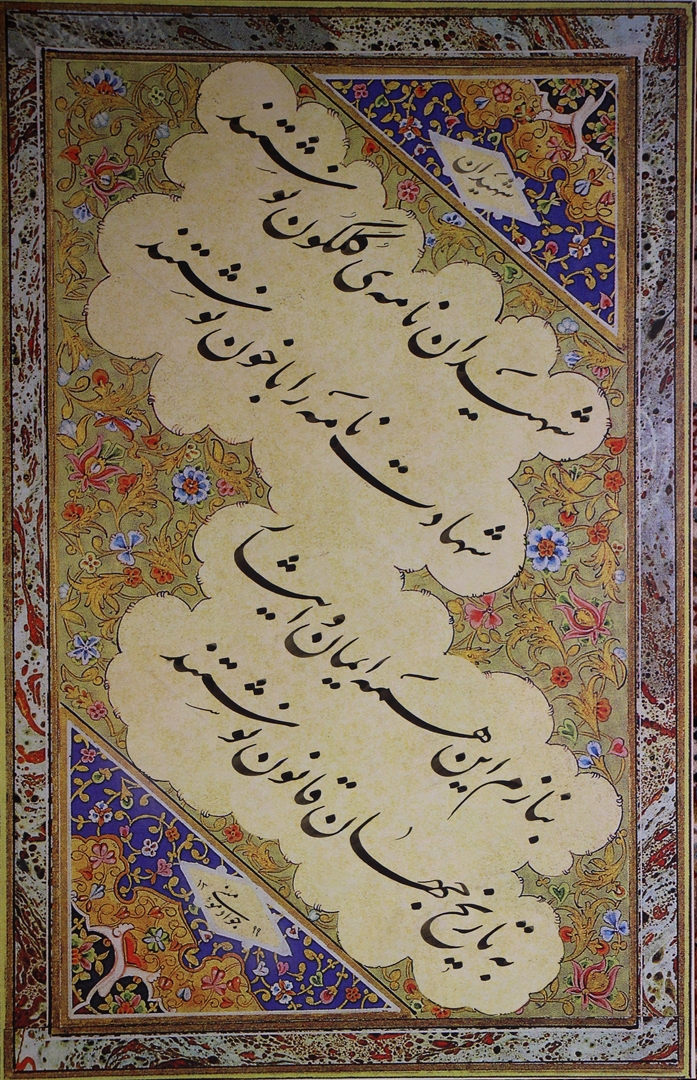 شهیدان
شهیدان نامه‌ی گلگون نوشتند
شهادت نامه را با خون نوشتند
بنازم این همه ایمان و ایثار
به تاریخ جهان قانون نوشتند